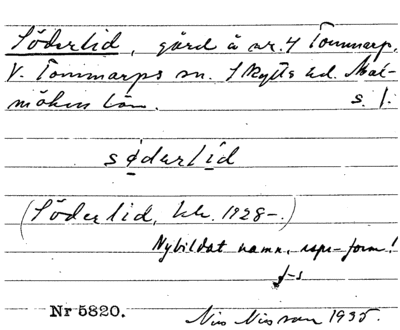 Söderlid, gård å nr. 4 Tommarp,
V. Tommarps sn. Skytts hd. Mal-
möhus län. s. l.
sǿderlid
(Söderlid, kk. 1928-.)
Nybildat namn, rspr-form!
J-s
Nr 5820. Nils Nilsson 1935.